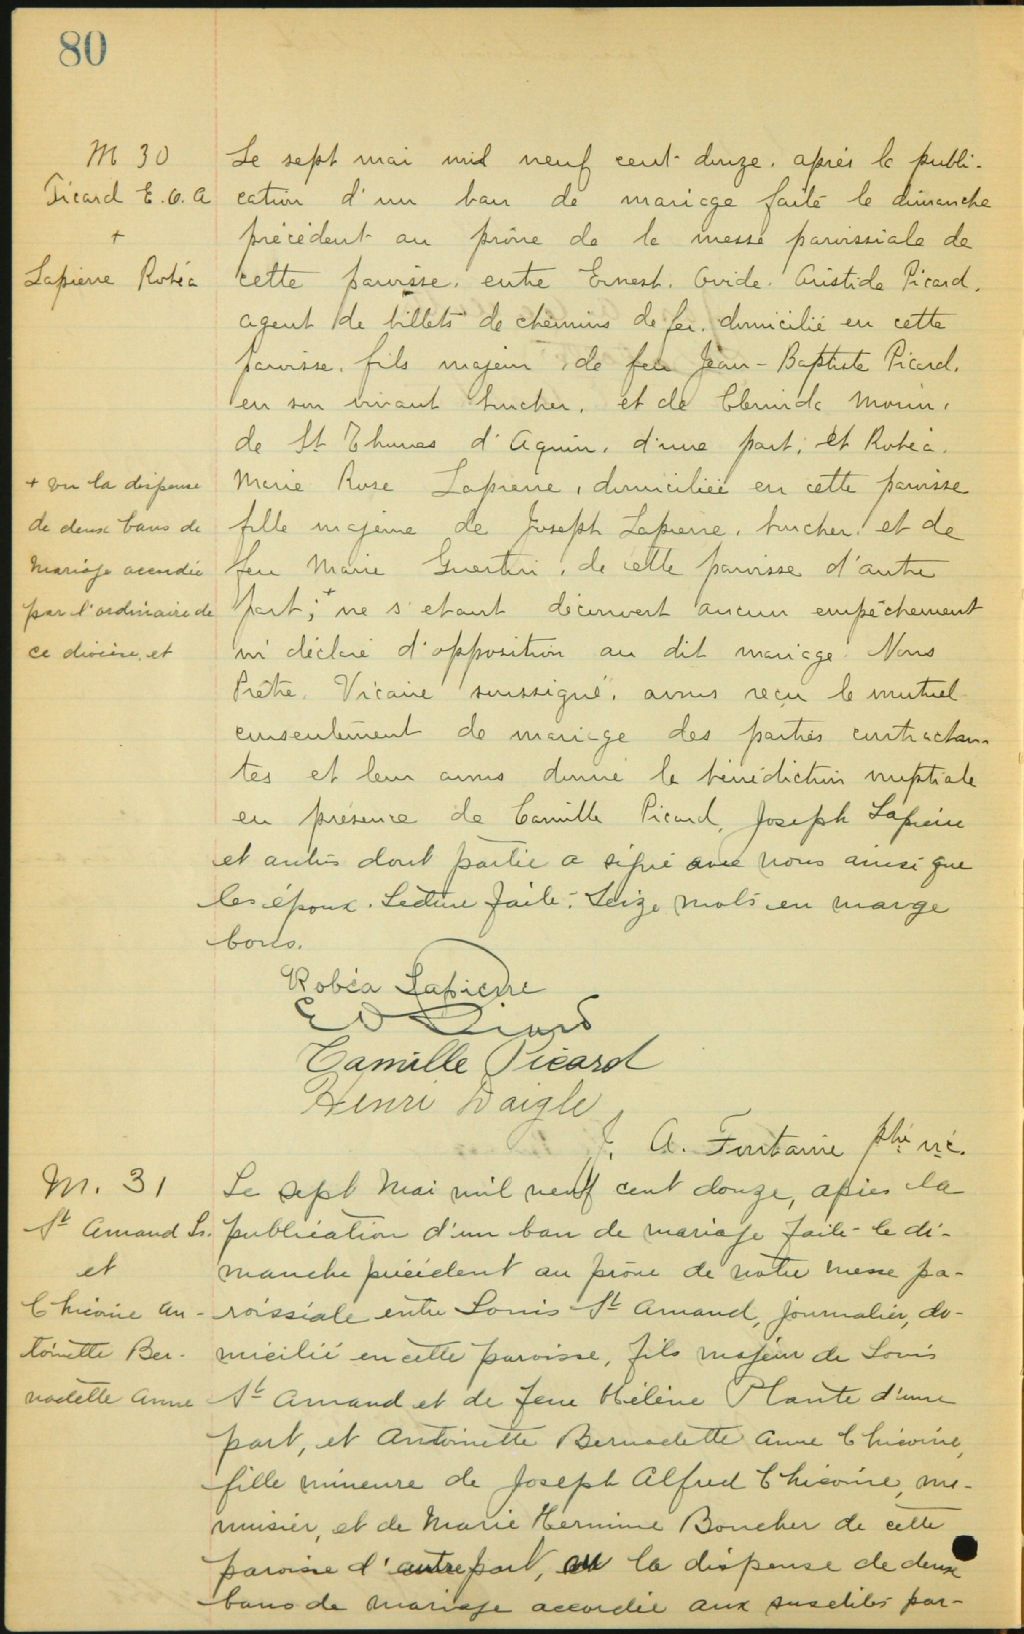 80
M 30
Picard E. O. A
+
Lapierre Robéa
Le sept mai mil neuf cent douze, après la publi-
cation d'un ban de mariage faite le dimanche
précédent au prône de la messe paroissiale de
cette paroisse, entre Ernest, Ovide, Aristide Picard,
agent de billets de chemins de fer, domicilié en cette
paroisse, fils majeur, de feu Jean-Baptiste Picard,
en son vivant boucher, et de Clerinda Morin,
de St Thomas d'Aquin, d'une part; et Robéa,
Marie Rose Lapierre, domiciliée en cette paroisse
fille majeure de Joseph Lapierre, boucher, et de
feu Marie Guertin, de cette paroisse d'autre
part; + ne s'etant découvert aucun empêchement
ni déclaré d'opposition au dit mariage. Nous
Prêtre, Vicaire soussigné, avons reçu le mutuel
consentement de mariage des parties contractan-
tes et leur avons donné la bénédiction nuptiale
en présence de Camille Picard, Joseph Lapierre
et autres dont partie a signé avec nous ainsi que
les époux. Lecture faite. Seize mots en marge
bons.
+ vu la dispense
de deux bans de
mariage accordée
par l'ordinaire de
ce diocèse, et
Robéa Lapierre
E O Picard
Camille Picard
Henri Daigle
J. A. Fontaine ptre vic.
M. 31
St Amand Ls.
et
Chicoine An-
toinette Ber-
nadette Anne
Le sept Mai mil neuf cent douze, après la
publication d'un ban de mariage faite le di-
manche précédent au prône de notre messe pa-
roissiale entre Louis St Amand, journalier, do-
micilié en cette paroisse, fils majeur de Louis
St Amand et de feue Hélène Plante d'une
part, et Antoinette Bernadette Anne Chicoine,
fille mineure de Joseph Alfred Chicoine, me-
nuisier, et de Marie Hermine Boucher de cette
paroisse d'autre part, vu la dispense de deux
bans de mariage accordée aux susdites par-